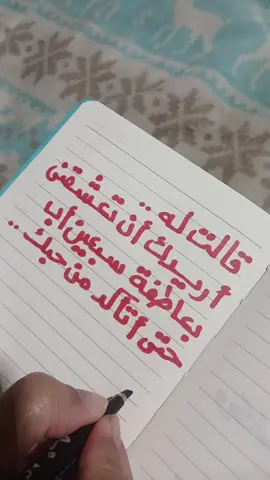 قالت له ..
أريدك أن تعشقني
بعاطفة سبعين أب
حتى أتأكد من حبك ..